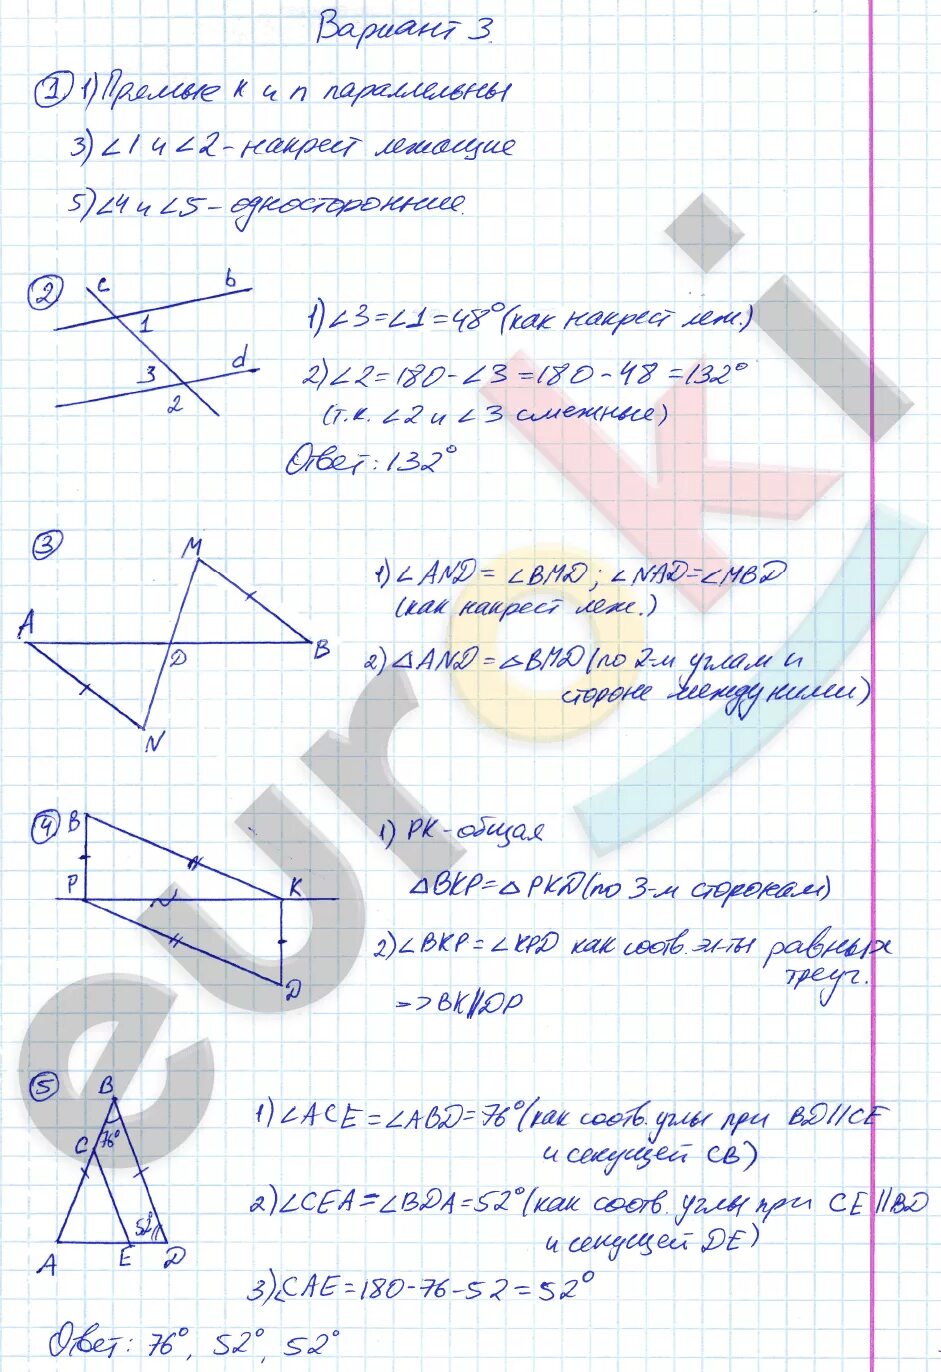 Вариант 3.
① 1) Прямые k и n параллельны
3) ∠1 и ∠2 - накрест лежащие
5) ∠4 и ∠5 - односторонние.
②
c
b
1
3
d
2
1) ∠3 = ∠1 = 48° (как накрест леж.)
2) ∠2 = 180 - ∠3 = 180 - 48 = 132°
(т.к. ∠2 и ∠3 смежные)
Ответ: 132°
③
M
A
D
B
N
1) ∠AND = ∠BMD; ∠NAD = ∠MBD
(как накрест леж.)
2) △AND = △BMD (по 2-м углам и
стороне между ними)
④
B
P
K
D
1) PK - общая
△BKP = △PKD (по 3-м сторонам)
2) ∠BKP = ∠KPD как соотв. эл-ты равных
треуг.
=> BK || DP
⑤
B
C
76°
52°
A
E
D
1) ∠ACE = ∠ABD = 76° (как соотв. углы при BD || CE
и секущей CB)
2) ∠CEA = ∠BDA = 52° (как соотв. углы при CE || BD
и секущей DE)
3) ∠CAE = 180 - 76 - 52 = 52°
Ответ: 76°, 52°, 52°
euroki